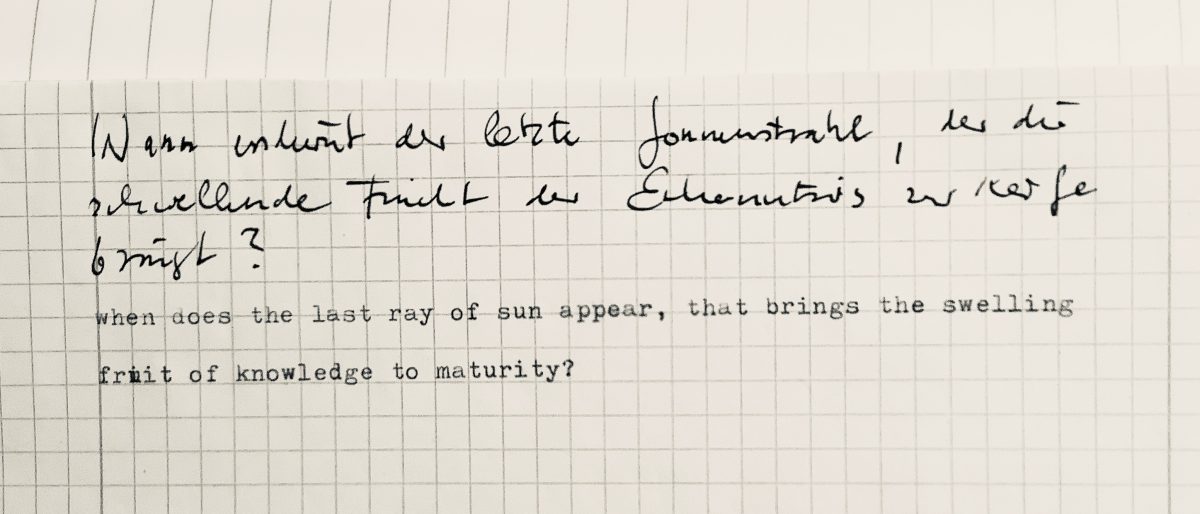 Wann erscheint der letzte Sonnenstrahl, der die
schwellende Frucht der Erkenntnis zur Reife
bringt?
when does the last ray of sun appear, that brings the swelling
fruit of knowledge to maturity?